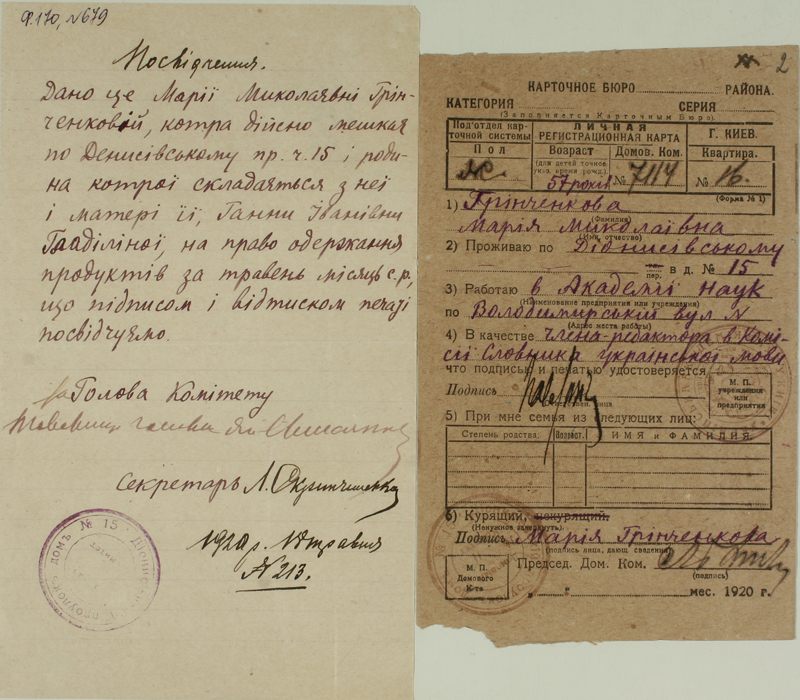 Ф.170, №679
Посвідчення.
Дано це Марії Миколаявні Грін-
ченковой, котра дійсно мешкая
по Денисівському пр. ч. 15 і роди-
на котрої складаяється з неї
і матері її, Ганни Іванівни
на право одержання
продуктів за травень місяць с.р,
що підписом і відтиском печаті
посвідчуємо.
Голова Комітету
Секретарь Л.
1920 р. травня
№ 213.
ДОМЪ № 15
2
КАРТОЧНОЕ БЮРО РАЙОНА.
КАТЕГОРИЯ СЕРИЯ
(Заполняется Карточным Бюро)
Под'отдел кар-
точной системы
ЛИЧНАЯ
РЕГИСТРАЦИОННАЯ КАРТА
Г. КИЕВ.
Пол Возраст Домов. Ком. Квартира.
(для детей точное
указ. время рожд.)
57 рокі № 7114 № 16.
(Форма № 1)
1) Грінченкова
(Фамилия)
Марія Миколаївна
(Имя, отчество)
2) Проживаю по Діонисівському
пер. в д. № 15
3) Работаю в Академії Наук
(Наименование предприятия или учреждения)
по Володимирській вул №
(Адрес места работы)
4) В качестве члена-редактора в Комі-
сії Словника української мови
что подписью и печатью удостоверяется
Подпись
М. П.
учреждения
или
предприятия
5) При мне семья из следующих лиц:
Степень родства. Возраст. ИМЯ и ФАМИЛИЯ.
6) Курящий, некурящий.
(Ненужное зачеркнуть).
Подпись Марія Грінченкова
(подпись лица, дающ. сведения)
Председ. Дом. Ком.
(подпись)
М. П.
Домового
К-та
„ „ мес. 1920 г.